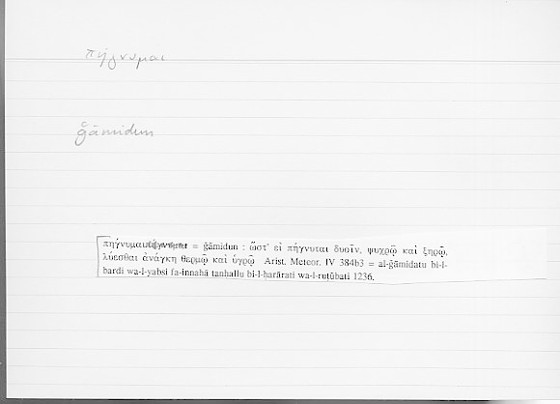 πήγνυμαι
ǧāmidun
πηγνυμαι = ǧāmidun : ὥστ' εἰ πήγνυται δυοῖν, ψυχρῷ καὶ ξηρῷ,
λύεσθαι ἀνάγκη θερμῷ καὶ ὑγρῷ Arist. Meteor. IV 384b3 = al-ǧāmidatu bi-l-
bardi wa-l-yabsi fa-innahā tanḥallu bi-l-ḥarārati wa-l-ruṭūbati 1236.